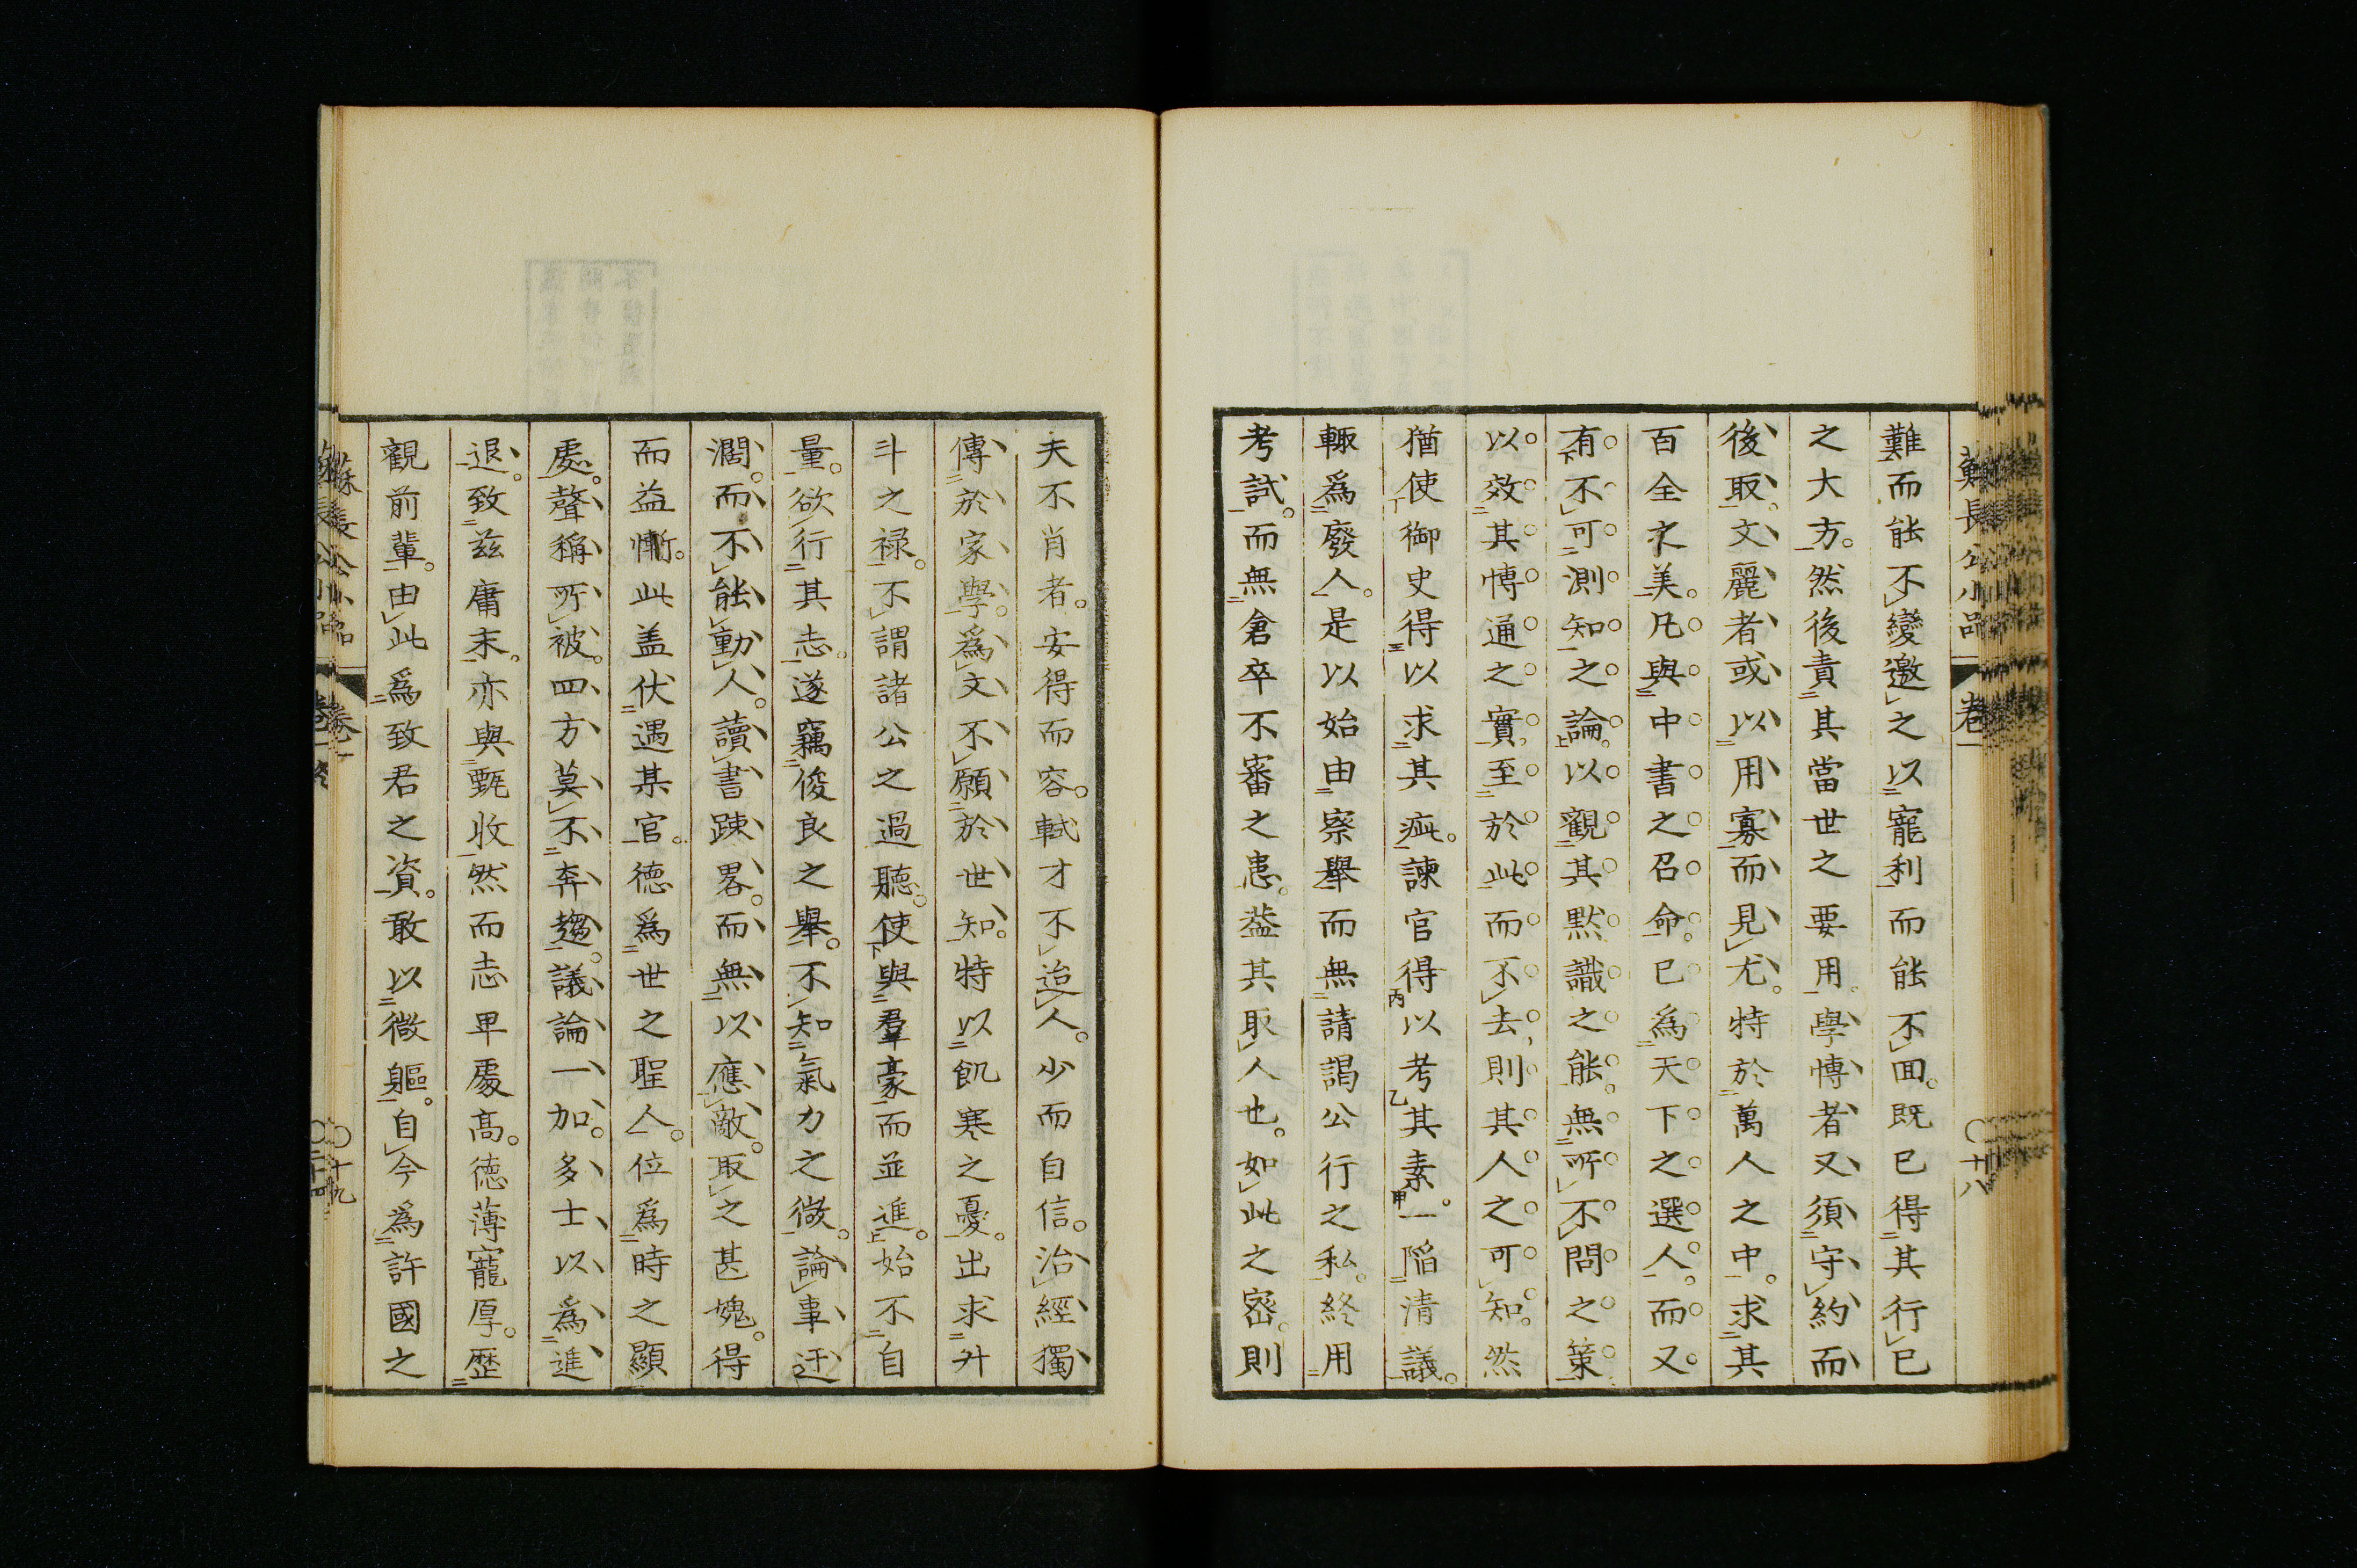 蘇長公小品 卷一 〇十八
難而能不變邀之以寵利而能不回既已得其行已
之大方然後責其當世之要用學愽者又須守約而
後取文麗者或以用寡而見尤特於萬人之中求其
百全之美凡與中書之召命已為天下之選人而又
有不可測知之論以觀其默識之能無所不問之策
以效其愽通之實至於此而不去則其人之可知然
猶使御史得以求其疵諫官得以考其素一陷清議
輙為廢人是以始由察舉而無請謁公行之私終用
考試而無倉卒不審之患葢其取人也如此之密則
夫不肖者安得而容軾才不迨人少而自信治經獨
傳於家學為文不願於世知特以飢寒之憂出求升
斗之禄不謂諸公之過聽使與羣豪而並進始不自
量欲行其志遂竊俊良之舉不知氣力之微論事迂
濶而不能動人讀書踈畧而無以應敵取之甚媿得
而益慚此盖伏遇某官德為世之聖人位為時之顯
處聲稱所被四方莫不奔趨議論一加多士以為進
退致兹庸末亦與甄收然而志卑處高德薄寵厚歴
觀前輩由此為致君之資敢以微軀自今為許國之
蘇長公小品 卷一 〇十九